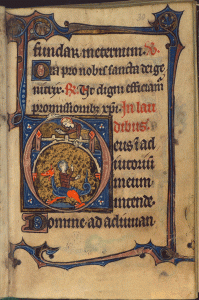 fundar in eternum. 
Ora pro nobis sancta dei ge
nitrix. Ut digni efficiam
promissionib; xpi. In lau
dibus.
Deus i ad
iutorium
meum
intende.
Domine ad adiuuan